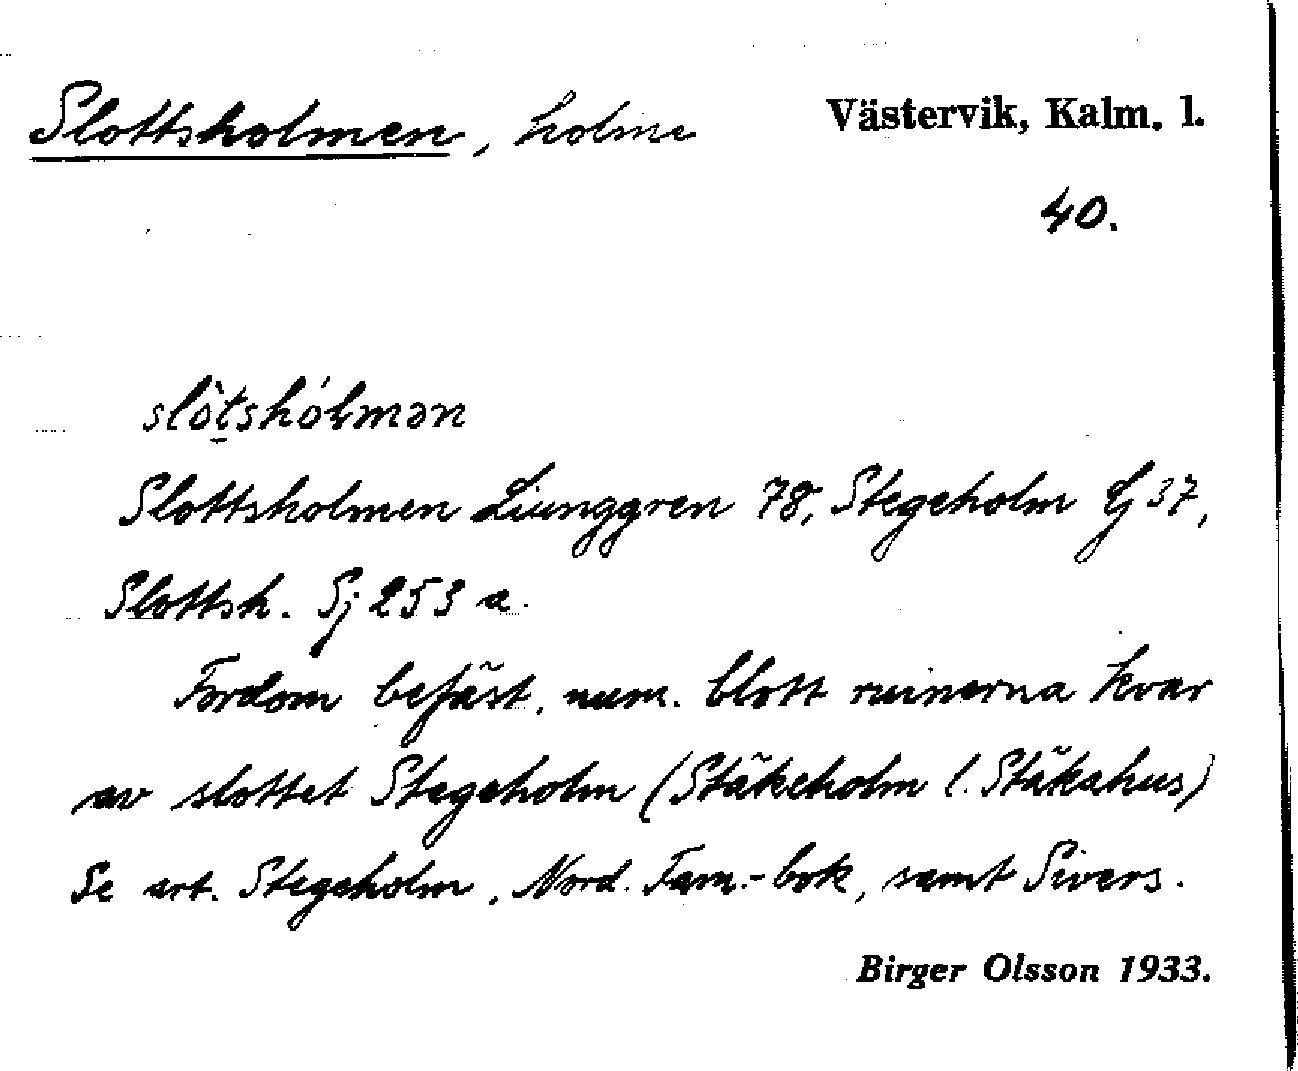 Slottsholmen, holme Västervik, Kalm. l.
40.
slòt̠shólmən
Slottsholmen Liunggren 78, Stegeholm G 37,
Slottsh. Sj 253 a.
Fordom befäst, num. blott ruinerna kvar
av slottet Stegeholm (Stäkeholm l. Stäkahus)
Se art. Stegeholm, Nord. Fam.-bok, samt Sivers.
Birger Olsson 1933.